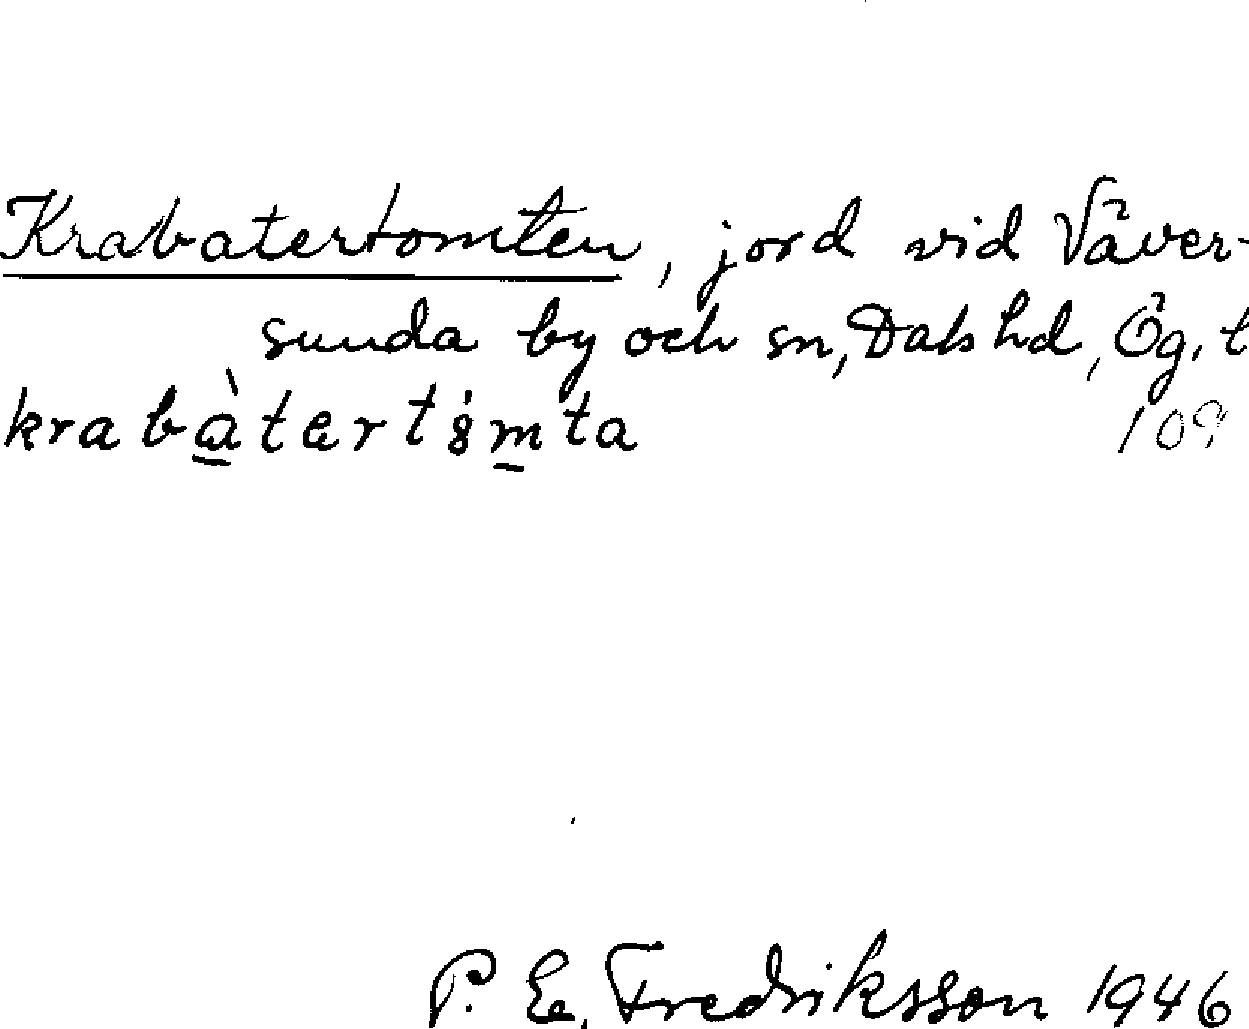 Krabatertomten, jord vid Väver-
sunda by och sn, Dals hd, Ög. t
krabàtertȯmta
P. E. Fredriksson 1946